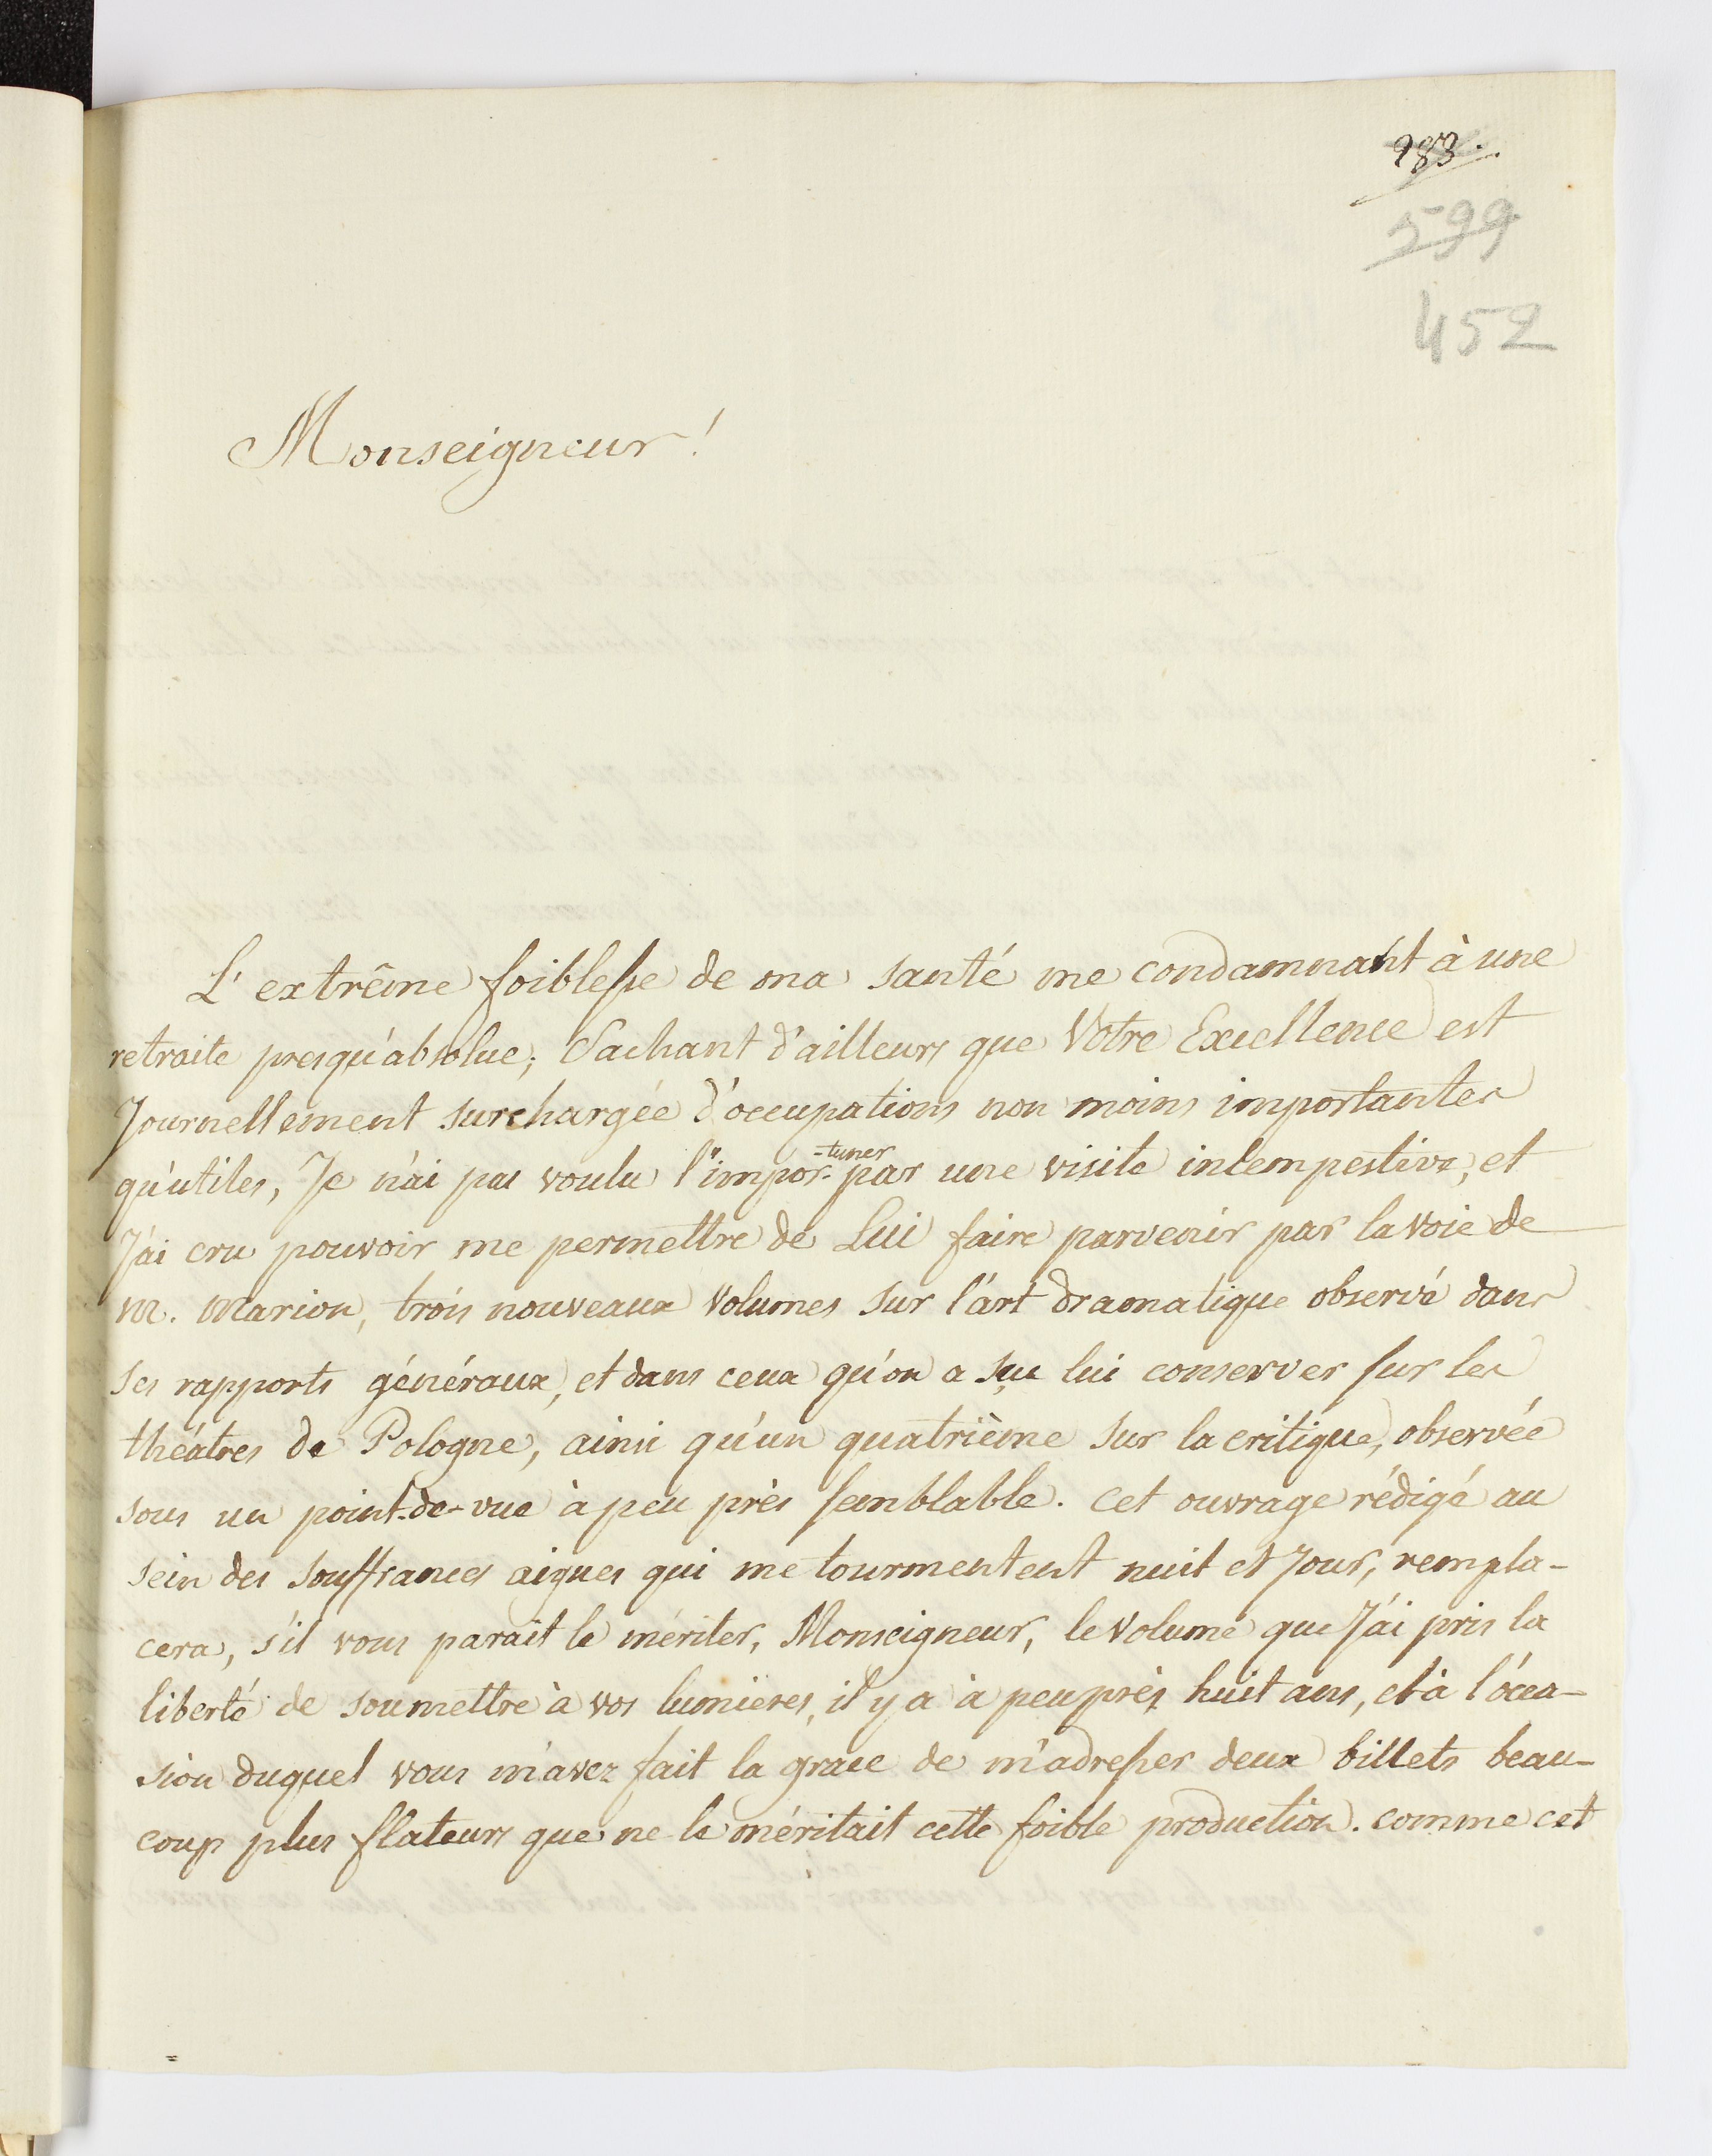 983.
599
452
Monseigneur!
L'extrême foiblesse de ma santé me condamnant à une
retraite presqu'absolue; Sachant d'ailleurs que Votre Excellence est
Journellement surchargée d'occupations non moins importantes
qu'utiles, Je n'ai pas voulu l'impor-tuner par une visite intempestive, et
J'ai cru pouvoir me permettre de Lui faire parvenir par la voie de
M. Marion, trois nouveaux Volumes sur l'art dramatique observé dans
ses rapports généraux, et dans ceux qu'on a su lui conserver sur les
théatres de Pologne, ainsi qu'un quatrième sur la critique, observée
sous un point-de-vue à peu près semblable. cet ouvrage rédigé au
sein des souffrances aigues qui me tourmentent nuit et Jour, rempla-
cera, s'il vous parait le mériter, Monseigneur, le Volume que J'ai pris la
liberté de soumettre à vos lumieres, il y a à peu près huit ans, et à l'occa-
sion duquel vous m'avez fait la grace de m'adresser deux billets beau-
coup plus flateurs que ne le méritait cette foible production. comme cet